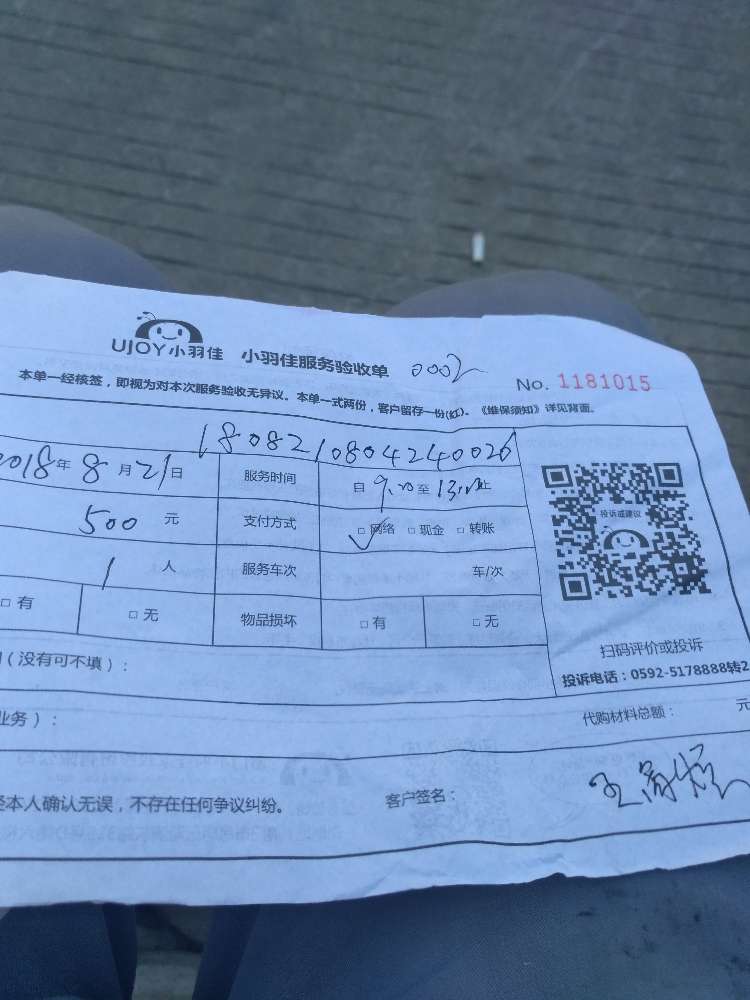 UJOY小羽佳 小羽佳服务验收单 0002 No. 1181015
本单一经核签，即视为对本次服务验收无异议。本单一式两份，客户留存一份(红)。《维保须知》详见背面。
1808210804240026
2018年8月21日 服务时间 自9:00至13:00止
500元 支付方式 □网络 □现金 □转账
1人 服务车次 车/次
□有 □无 物品损坏 □有 □无
投诉或建议
扫码评价或投诉
投诉电话：0592-5178888转2
（没有可不填）：
业务）： 代购材料总额： 元
经本人确认无误，不存在任何争议纠纷。 客户签名：